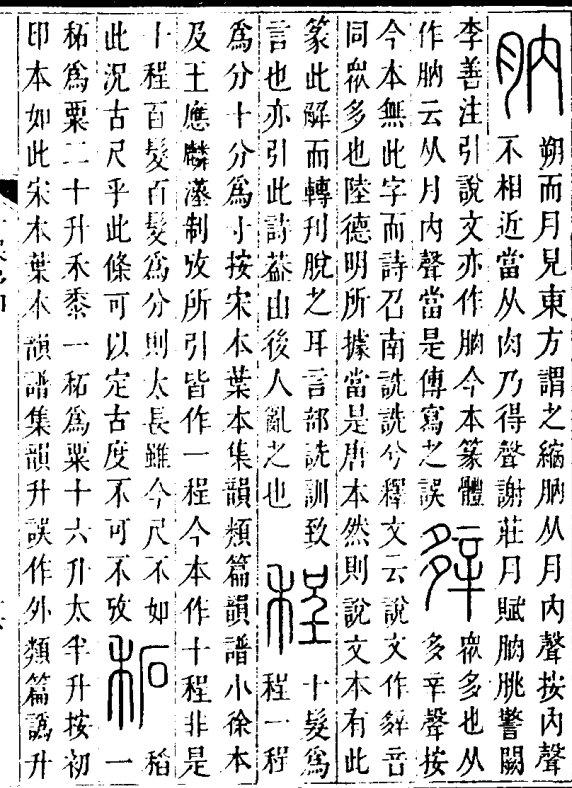 朒
朔而月見東方謂之縮朒从月内聲按内聲
不相近當从肉乃得聲謝莊月賦朒朓警闕
李善注引說文亦作朒今本篆體
作朒云从月内聲當是傳寫之誤
眾多也从
多辛聲按
今本無此字而詩召南詵詵兮釋文云說文作音
同眾多也陸德明所據當是唐本然則說文本有此
篆此解而轉刋脫之耳言部詵訓致
言也亦引此詩葢由後人亂之也
程
十髮爲
程一程
爲分十分爲寸按宋本葉本集韻類篇韻譜小徐本
及王應麟漢制攷所引皆作一程今本作十程非是
十程百髮百髮爲分則太長雖今尺不如
此況古尺乎此條可以定古度不可不攷
䄷
稻
一
䄷爲粟二十升禾黍一䄷爲粟十六升太半升按初
印本如此宋本葉本韻譜集韻升誤作外類篇譌升